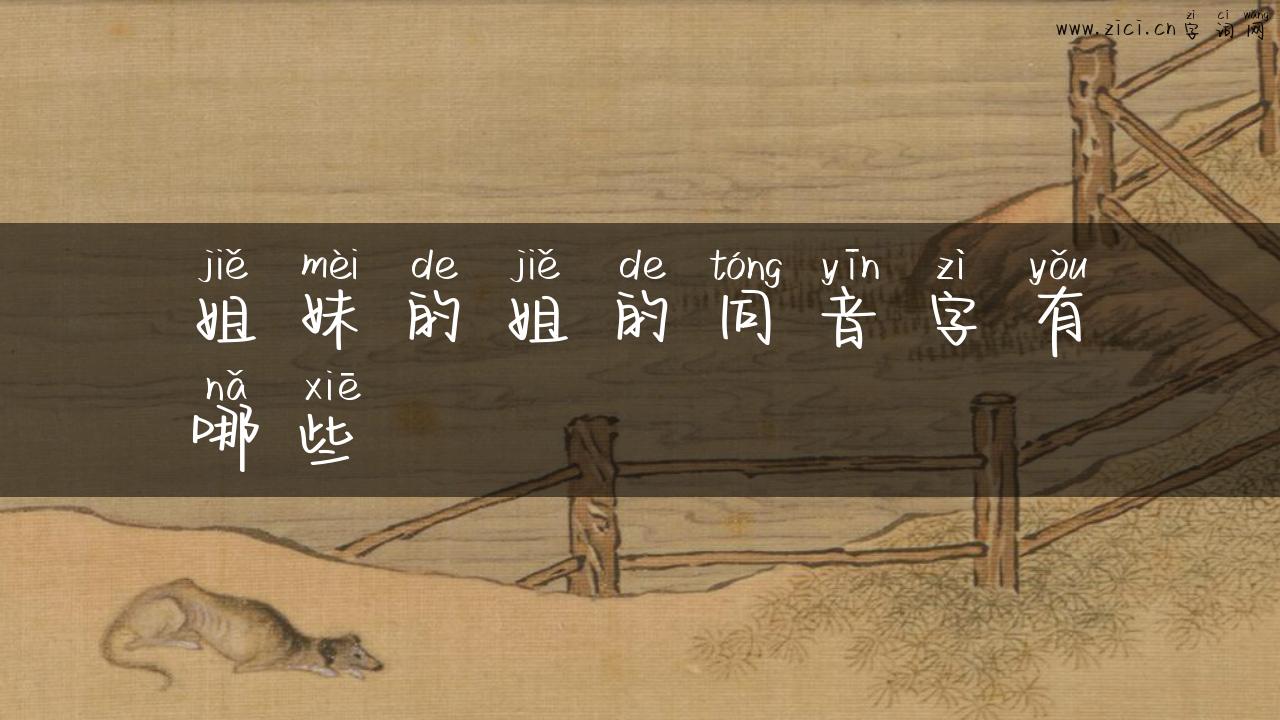 zì cí wǎng
www.zici.cn字词网
jiě mèi de jiě de tóng yīn zì yǒu
姐妹的姐的同音字有
nǎ xiē
哪些